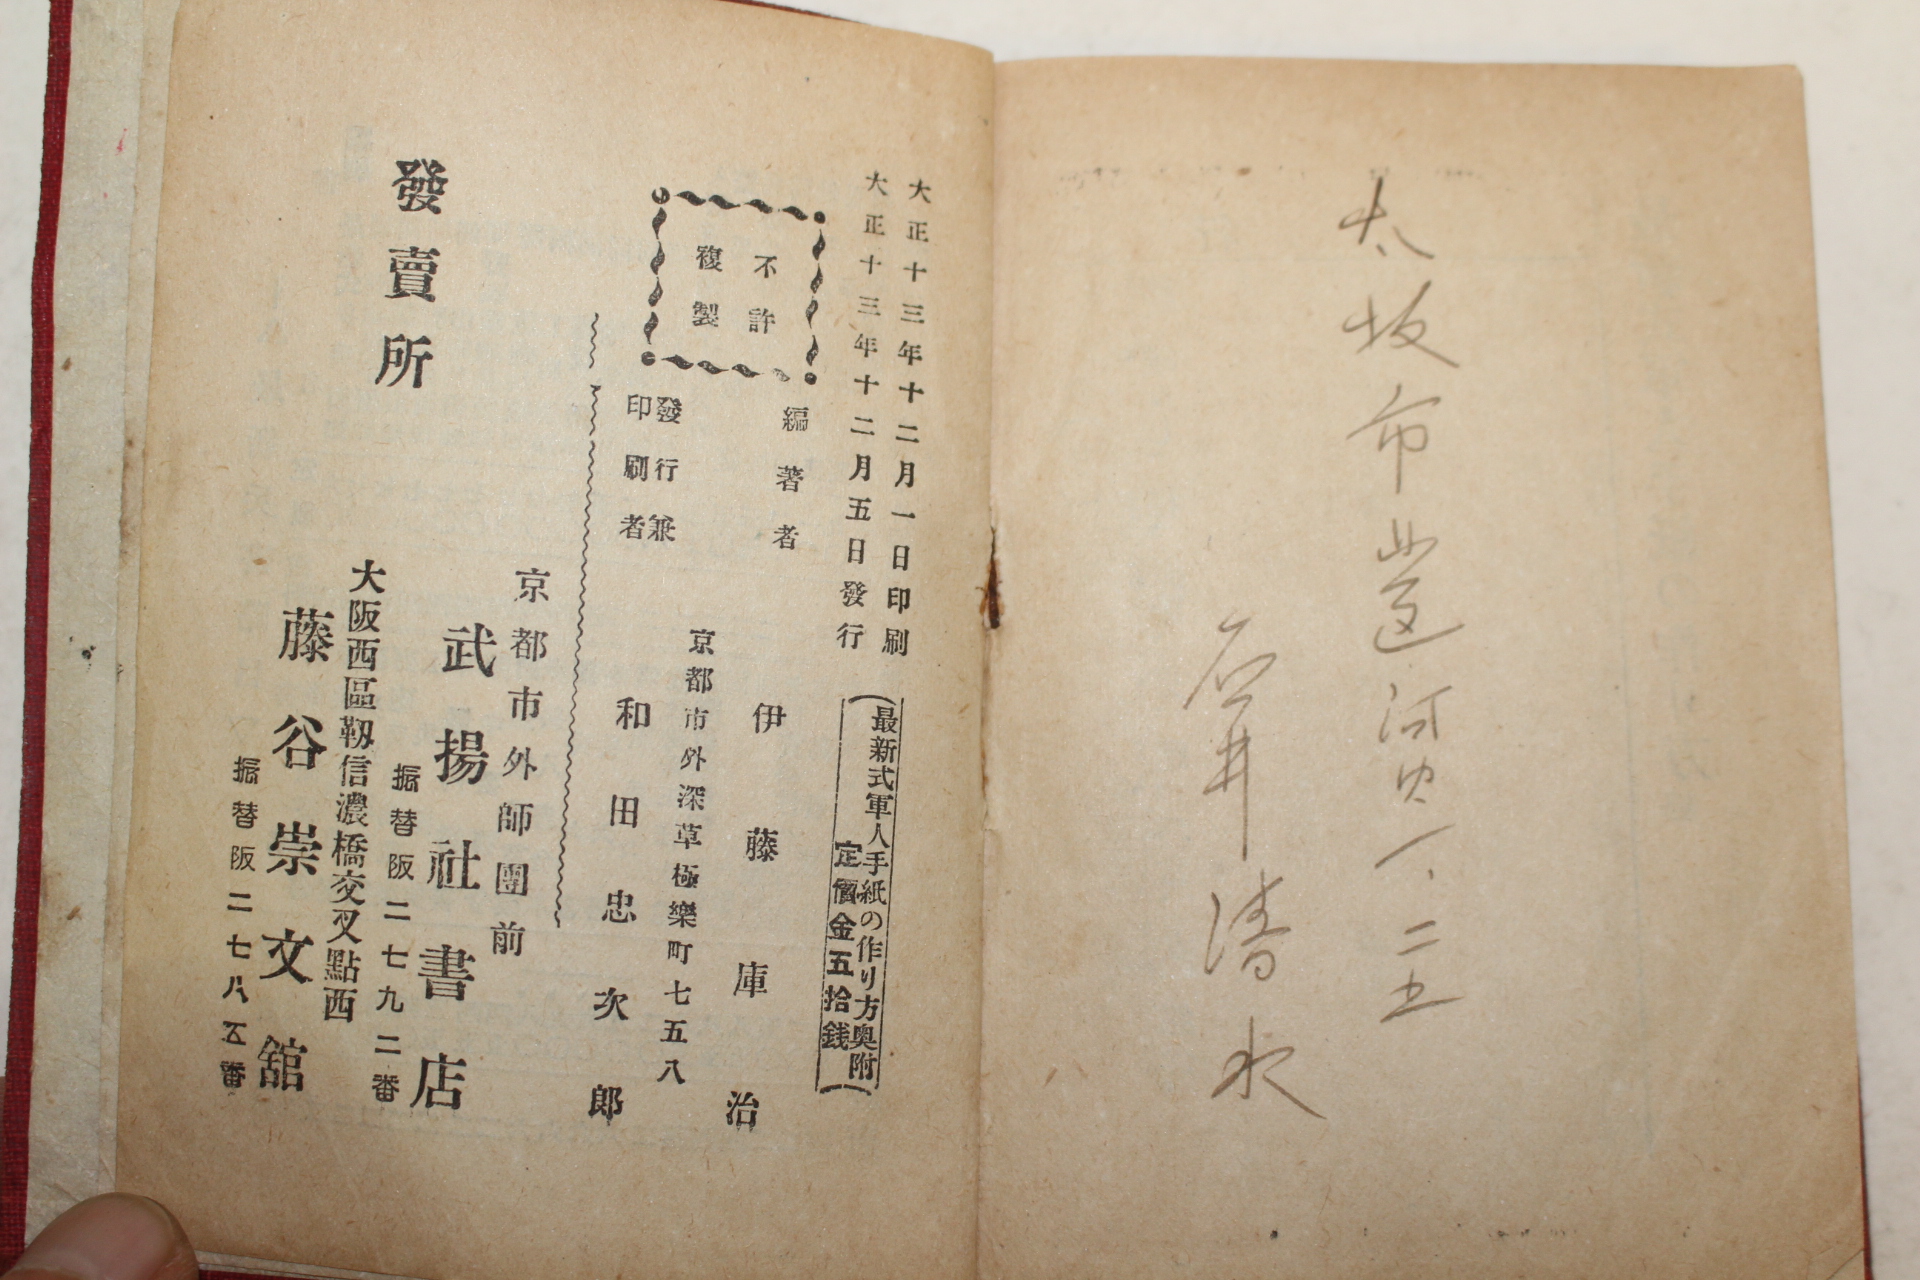 大坂市
石井清水
大正十三年十二月一日印刷
大正十三年十二月五日發行
(最新式軍人手紙の作り方奥附)
定價金五拾銭
不許
複製
編著者
伊藤庫治
京都市外深草極樂町七五八
發行兼
印刷者
和田忠次郎
發賣所
京都市外師團前
武揚社書店
振替阪二七九二番
大阪西區靱信濃橋交叉點西
藤谷崇文舘
振替阪二七八五番